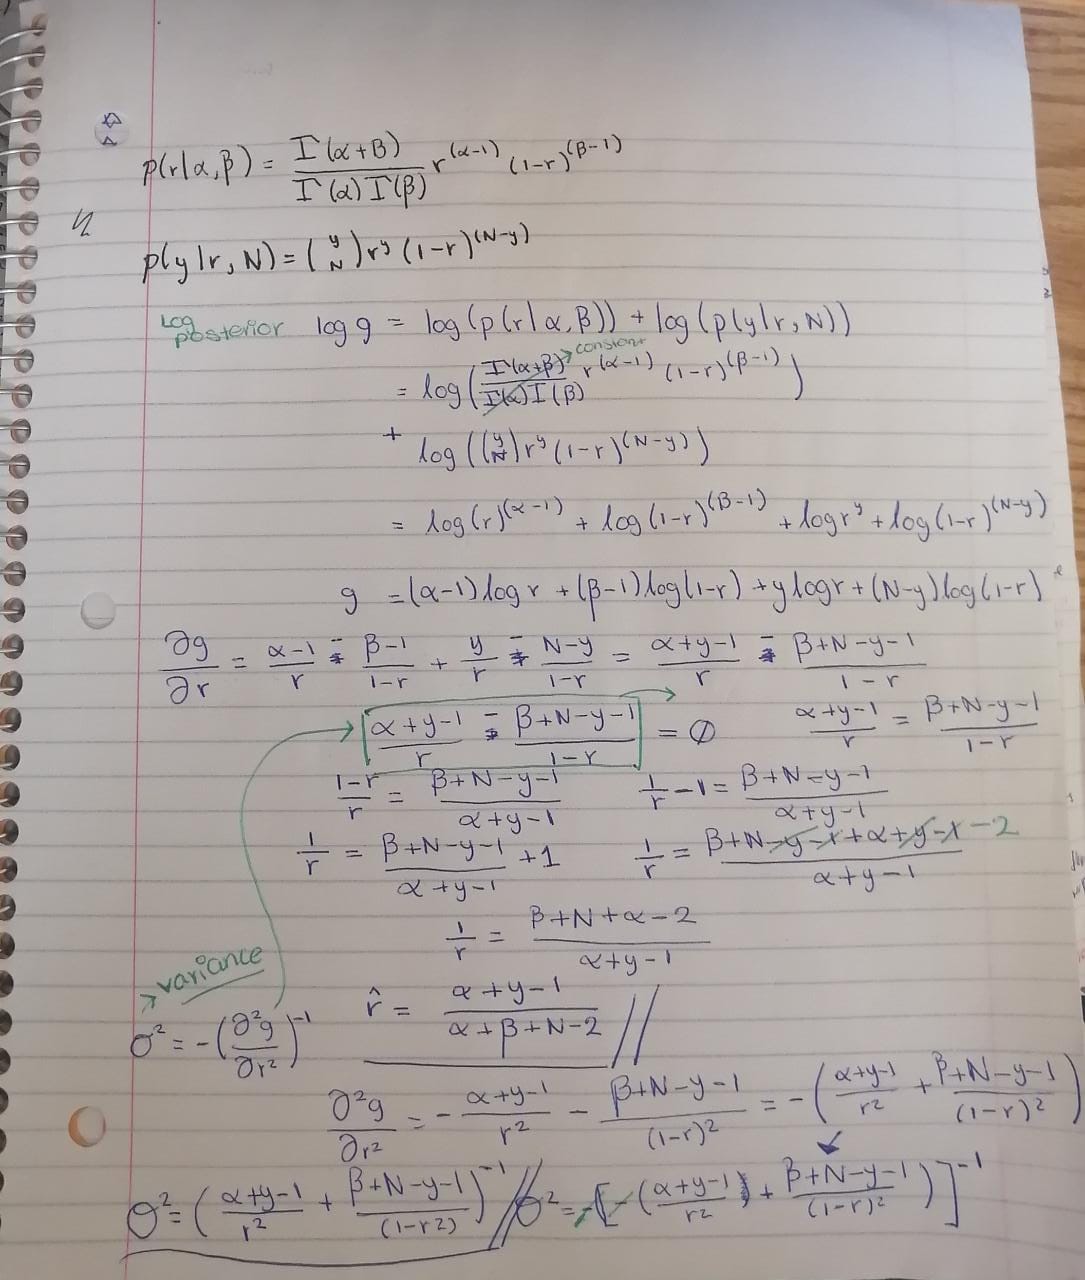 p(r|α,β) = Γ(α+β) / Γ(α)Γ(β) r^(α-1) (1-r)^(β-1)
p(y|r,N) = (y N) r^y (1-r)^(N-y)
Log posterior log g = log(p(r|α,β)) + log(p(y|r,N))
= log(Γ(α+β) / Γ(α)Γ(β) → constant r^(α-1) (1-r)^(β-1))
+ log((y N) r^y (1-r)^(N-y))
= log(r)^(α-1) + log(1-r)^(β-1) + log r^y + log(1-r)^(N-y)
g = (α-1) log r + (β-1) log(1-r) + y log r + (N-y) log(1-r)
∂g/∂r = α-1/r - β-1/1-r + y/r - N-y/1-r = α+y-1/r - β+N-y-1/1-r
α+y-1/r - β+N-y-1/1-r = 0 α+y-1/r = β+N-y-1/1-r
1-r/r = β+N-y-1/α+y-1 1/r - 1 = β+N-y-1/α+y-1
1/r = β+N-y-1/α+y-1 + 1 1/r = β+N-y-1+α+y-1-2/α+y-1
1/r = β+N+α-2/α+y-1
→ variance
σ² = -(∂²g/∂r²)^-1 r̂ = α+y-1/α+β+N-2 //
∂²g/∂r² = - α+y-1/r² - β+N-y-1/(1-r)² = -(α+y-1/r² + β+N-y-1/(1-r)²)
σ² = (α+y-1/r² + β+N-y-1/(1-r2))^-1 // σ² = -[-(α+y-1/r²) + β+N-y-1/(1-r)²)]^-1